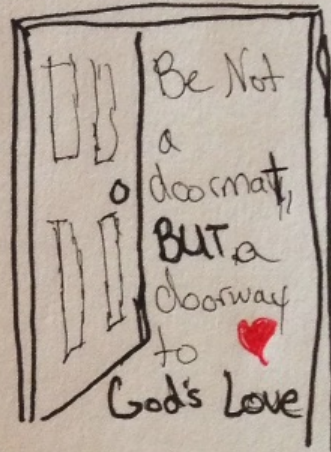 Be Not
a
doormat,
BUT a
doorway
to
God's Love